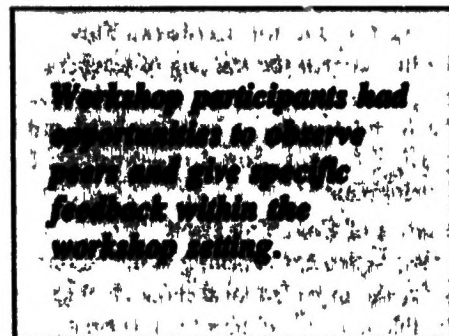 Workshop participants had
opportunities to observe
peers and give specific
feedback within the
workshop setting.